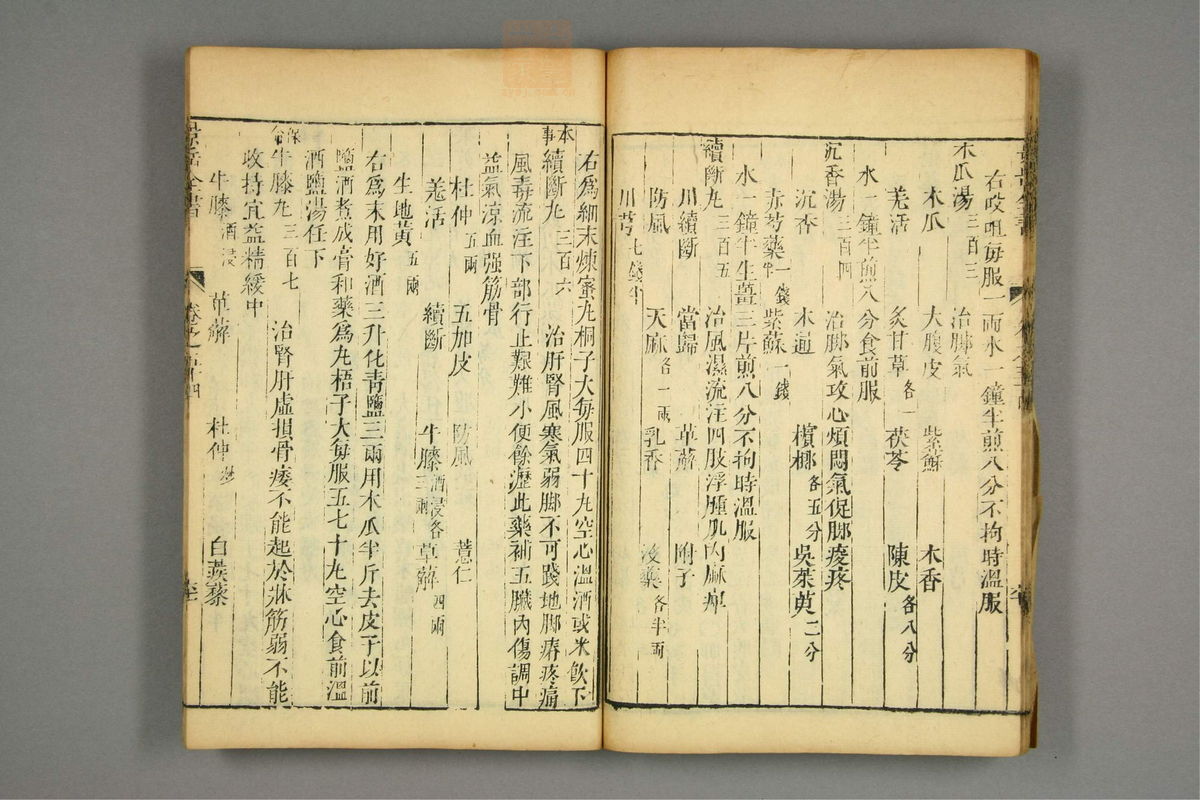 右㕮咀每服一兩水一鐘半煎八分不拘時溫服
木瓜湯 三百三 治脚氣
木瓜 大腹皮 紫蘇 木香
羌活 炙甘草各一 茯苓 陳皮各八分
水一鐘半煎八分食前服
沉香湯 三百四 治脚氣攻心煩悶氣促脚痠疼
沉香 木通 檳榔各五分 吳茱萸二分
赤芍藥一錢半 紫蘇一錢
水一鐘半生薑三片煎八分不拘時溫服
續斷丸 三百五 治風濕流注四肢浮腫肌肉麻痺
川續斷 當歸 萆薢 附子
防風 天麻各一兩 乳香 沒藥各半兩
川芎七錢半
右爲細末煉蜜丸桐子大每服四十丸空心溫酒或米飲下
本事續斷丸 三百六 治肝腎風寒氣弱脚不可踐地脚痟疼痛
風毒流注下部行止艱難小便餘瀝此藥補五臟內傷調中
益氣涼血强筋骨
杜仲五兩 五加皮 防風 薏仁
羌活 續斷 牛膝酒浸各三兩 萆薢四兩
生地黃五兩
右爲末用好酒三升化靑鹽三兩用木瓜半斤去皮子以前
鹽酒煮成膏和藥爲丸梧子大每服五七十丸空心食前溫
酒鹽湯任下
保命牛膝丸 三百七 治腎肝虛損骨痿不能起於牀筋弱不能
收持宜益精緩中
牛膝酒浸 萆薢 杜仲炒 白蒺藜
景岳全書 卷之五十四